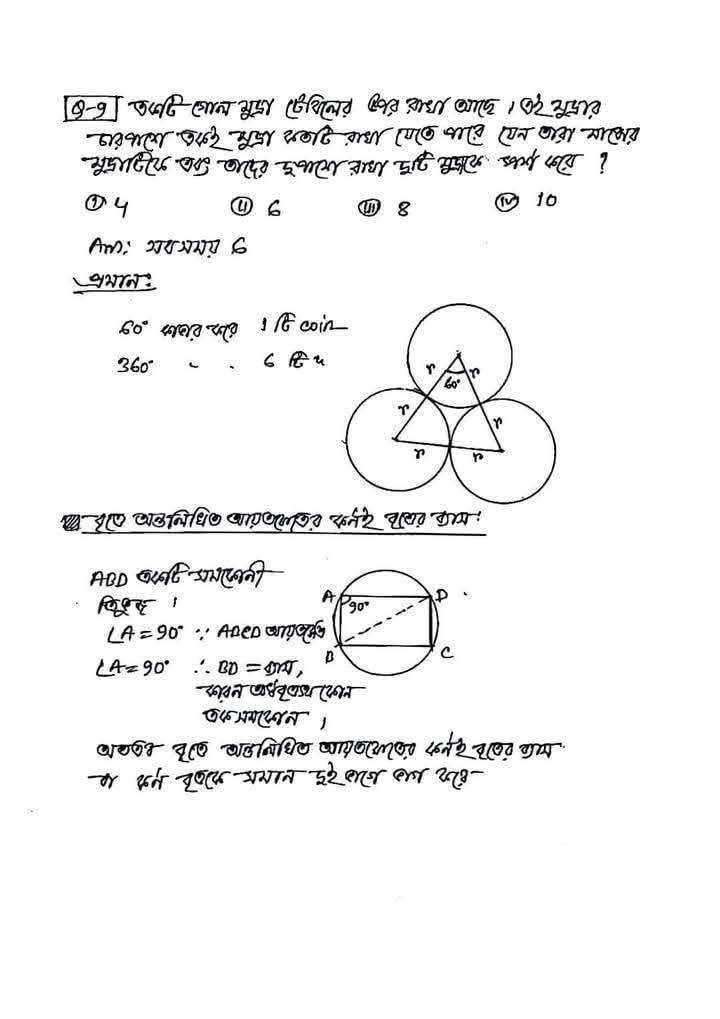 Q-9 একটি গোল মুদ্রা টেবিলের উপর রাখা আছে। এই মুদ্রার
চারপাশে একই মুদ্রা কতটি রাখা যেতে পারে যেন তারা মাঝের
মুদ্রাটিকে এবং তাদের দুপাশে রাখা দুটি মুদ্রাকে স্পর্শ করে ?
(i) 4 (ii) 6 (iii) 8 (iv) 10
Ans: সবসময় 6
প্রমান:
60° কভার করে 1 টি coin
360° " " 6 টি "
r r
60°
r r
r r
বৃত্তে অন্তর্লিখিত আয়তক্ষেত্রের কর্ণই বৃত্তের ব্যাস:
ABD একটি সমকোনী
ত্রিভুজ।
∠A = 90° ∵ ABCD আয়তক্ষেত্র
∠A = 90° ∴ BD = ব্যাস,
কারন অর্ধবৃত্তস্থ কোন
একসমকোন।
A D
90°
B C
অতএব বৃত্তে অন্তর্লিখিত আয়তক্ষেত্রের কর্ণই বৃত্তের ব্যাস
বা কর্ণ বৃত্তকে সমান দুই ভাগে ভাগ করে